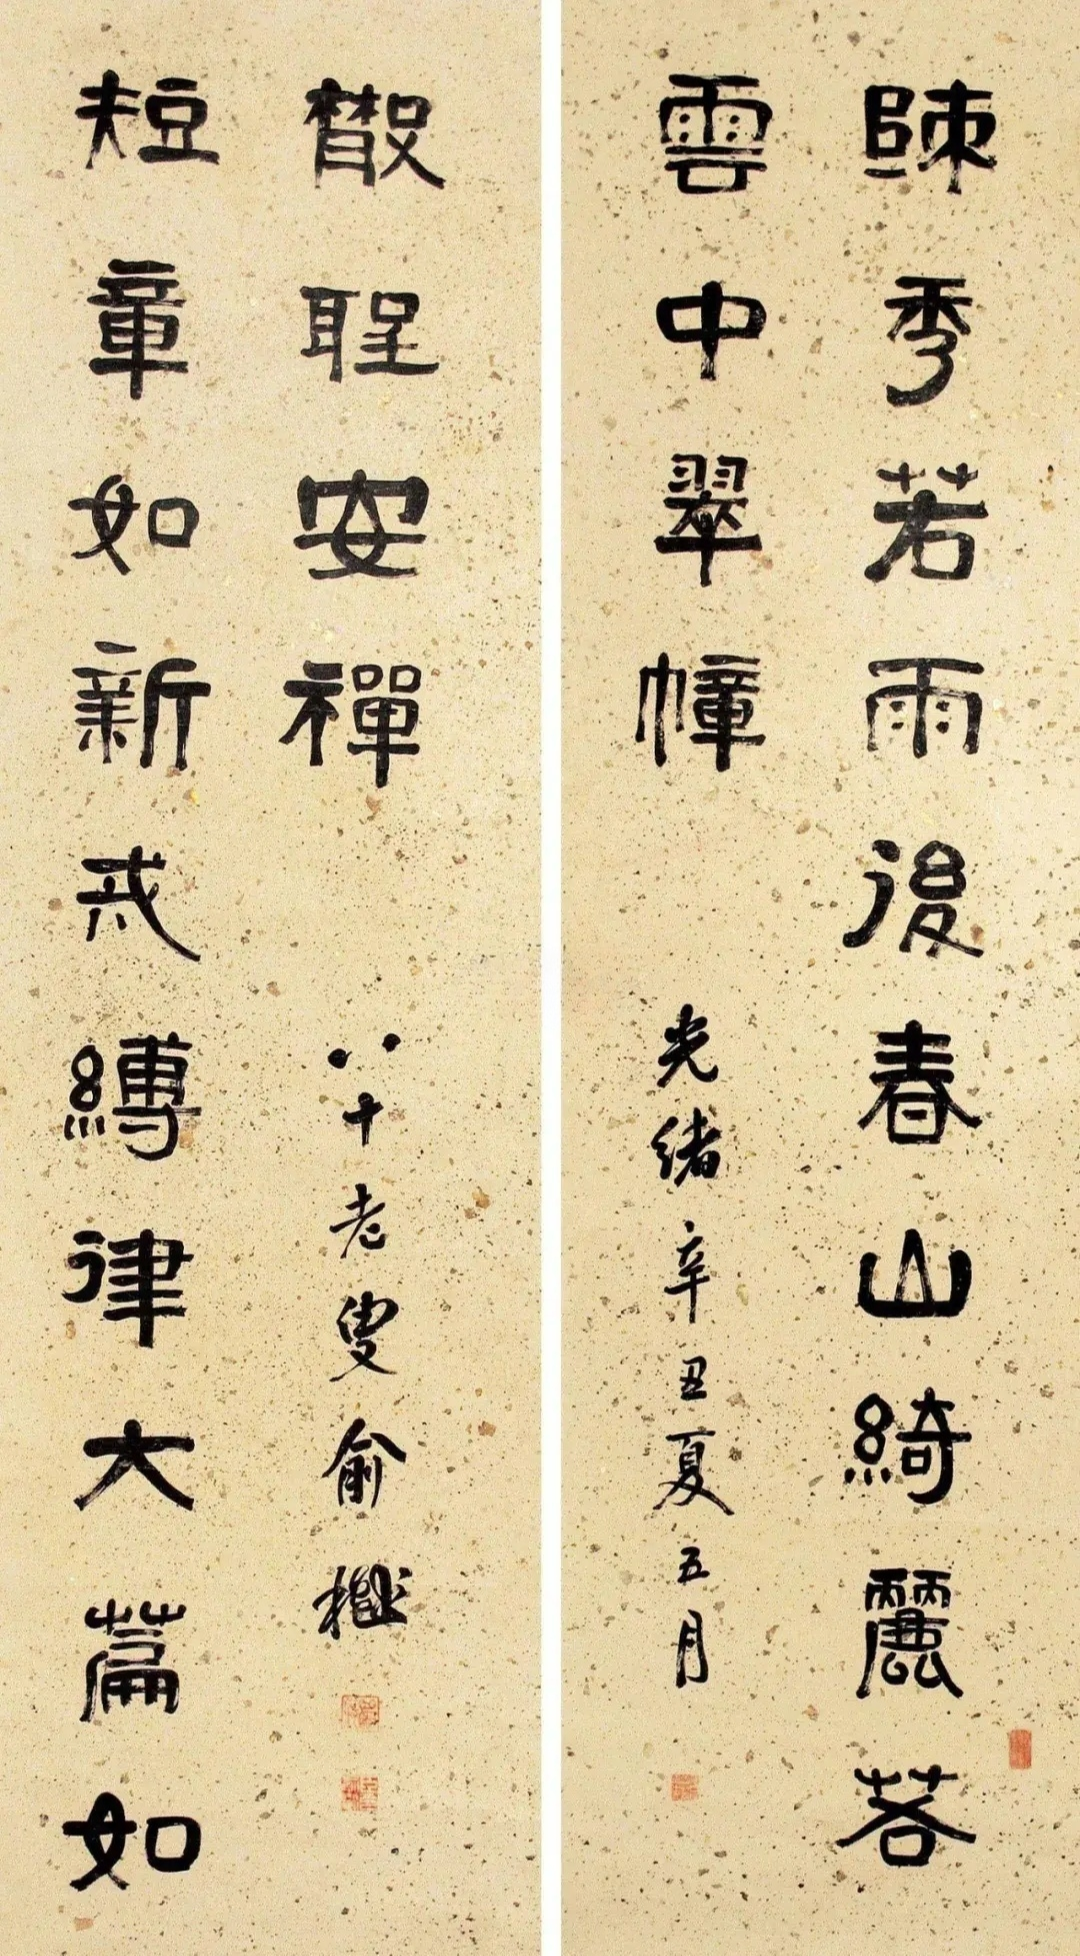 疎秀若雨後春山綺麗若
雲中翠幢
光緒辛丑夏五月
短章如新戒縛律大篇如
散聖安禪
八十老叟俞樾